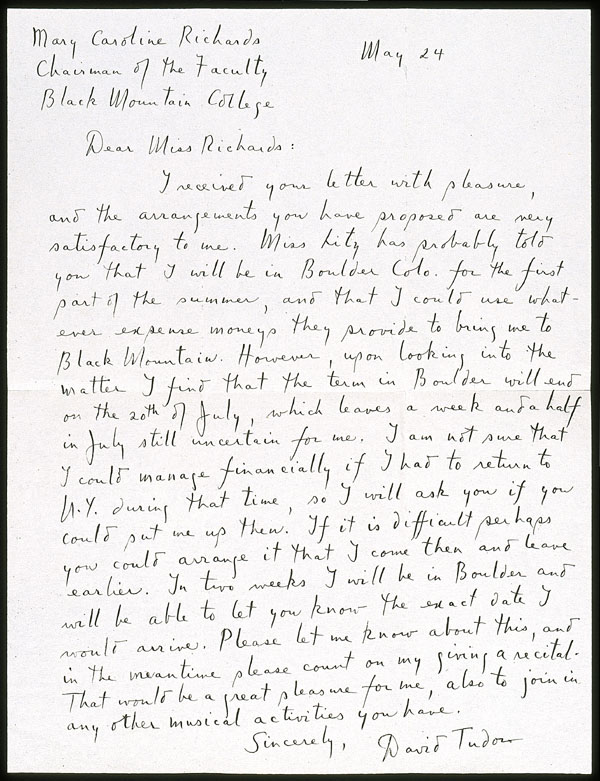 Mary Caroline Richards
May 24
Chairman of the Faculty
Black Mountain College
Dear Miss Richards:
I received your letter with pleasure,
and the arrangements you have proposed are very
satisfactory to me. Miss Litz has probably told
you that I will be in Boulder Colo. for the first
part of the summer, and that I could use what-
ever expense moneys they provide to bring me to
Black Mountain. However, upon looking into the
matter I find that the term in Boulder will end
on the 20th of July, which leaves a week and a half
in July still uncertain for me. I am not sure that
I could manage financially if I had to return to
N.Y. during that time, so I will ask you if you
could put me up then. If it is difficult perhaps
you could arrange it that I come then and leave
earlier. In two weeks I will be in Boulder and
will be able to let you know the exact date I
would arrive. Please let me know about this, and
in the meantime please count on my giving a recital.
That would be a great pleasure for me, also to join in
any other musical activities you have.
Sincerely, David Tudor